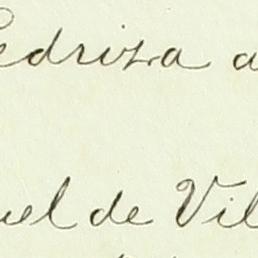 edriza a
uel de Vil